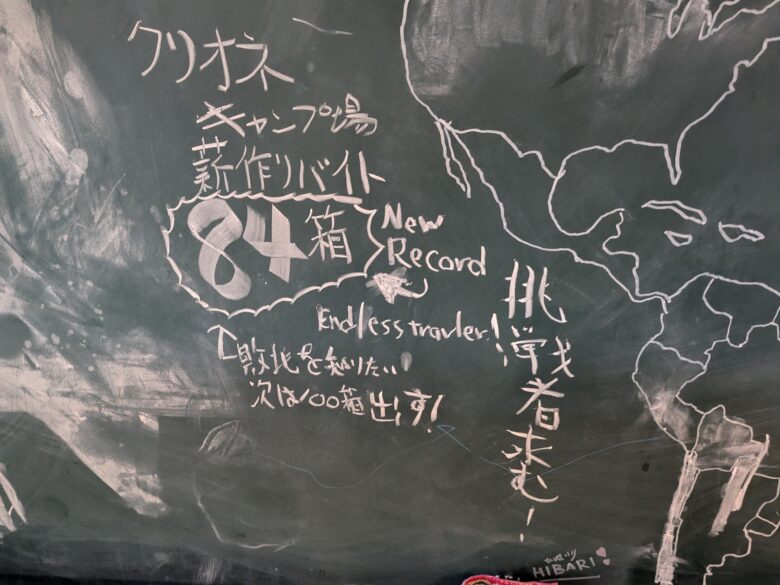 クリオネ
キャンプ場
薪作りバイト
84箱
New
Record
Endless travler!
敗北を知りたい!
次は100箱出す!
挑戦者求む!
HIBARI